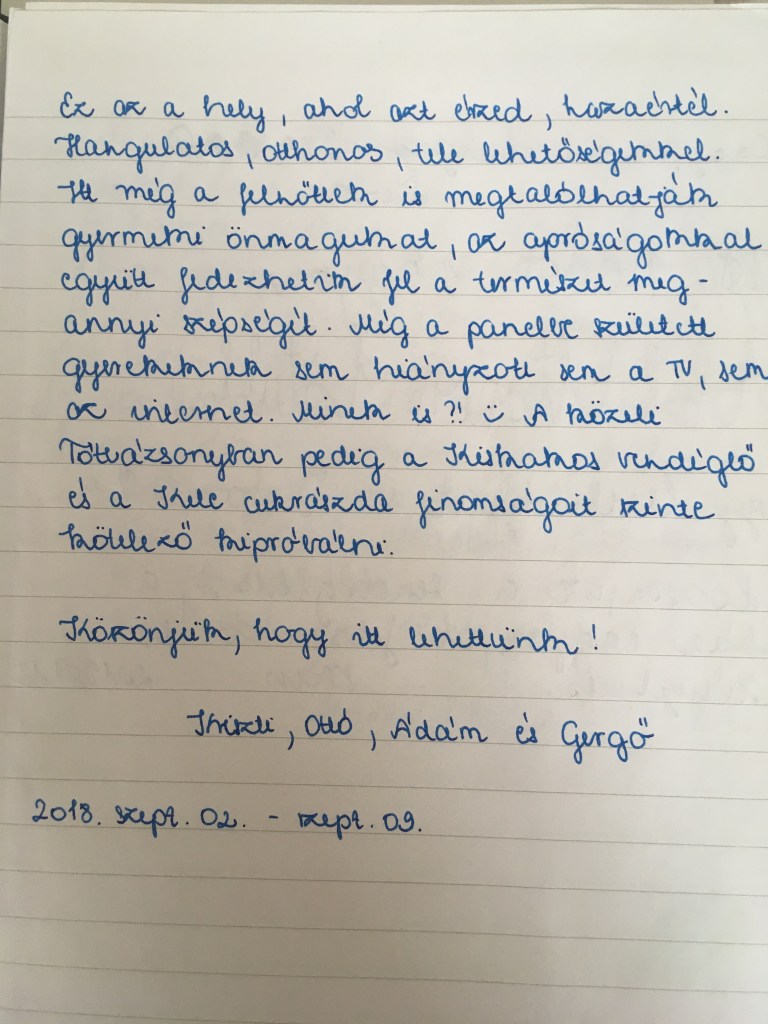 Ez az a hely, ahol azt érzed, hazaértél.
Hangulatos, otthonos, tele lehetőségekkel.
Itt még a felnőttek is megtalálhatják
gyermeki önmagukat, az apróságokkal
együtt fedezhetik fel a természet meg-
annyi szépségét. Míg a panelbe született
gyerekeknek sem hiányzott sem a TV, sem
az internet. Minek is?! ☺ A közeli
Tótvázsonyban pedig a Kiskakas vendéglő
és a Kele cukrászda finomságait szinte
kötelező kipróbálni.
Köszönjük, hogy itt lehettünk!
Kriszti, Ottó, Ádám és Gergő
2018. szept. 02. - szept. 09.